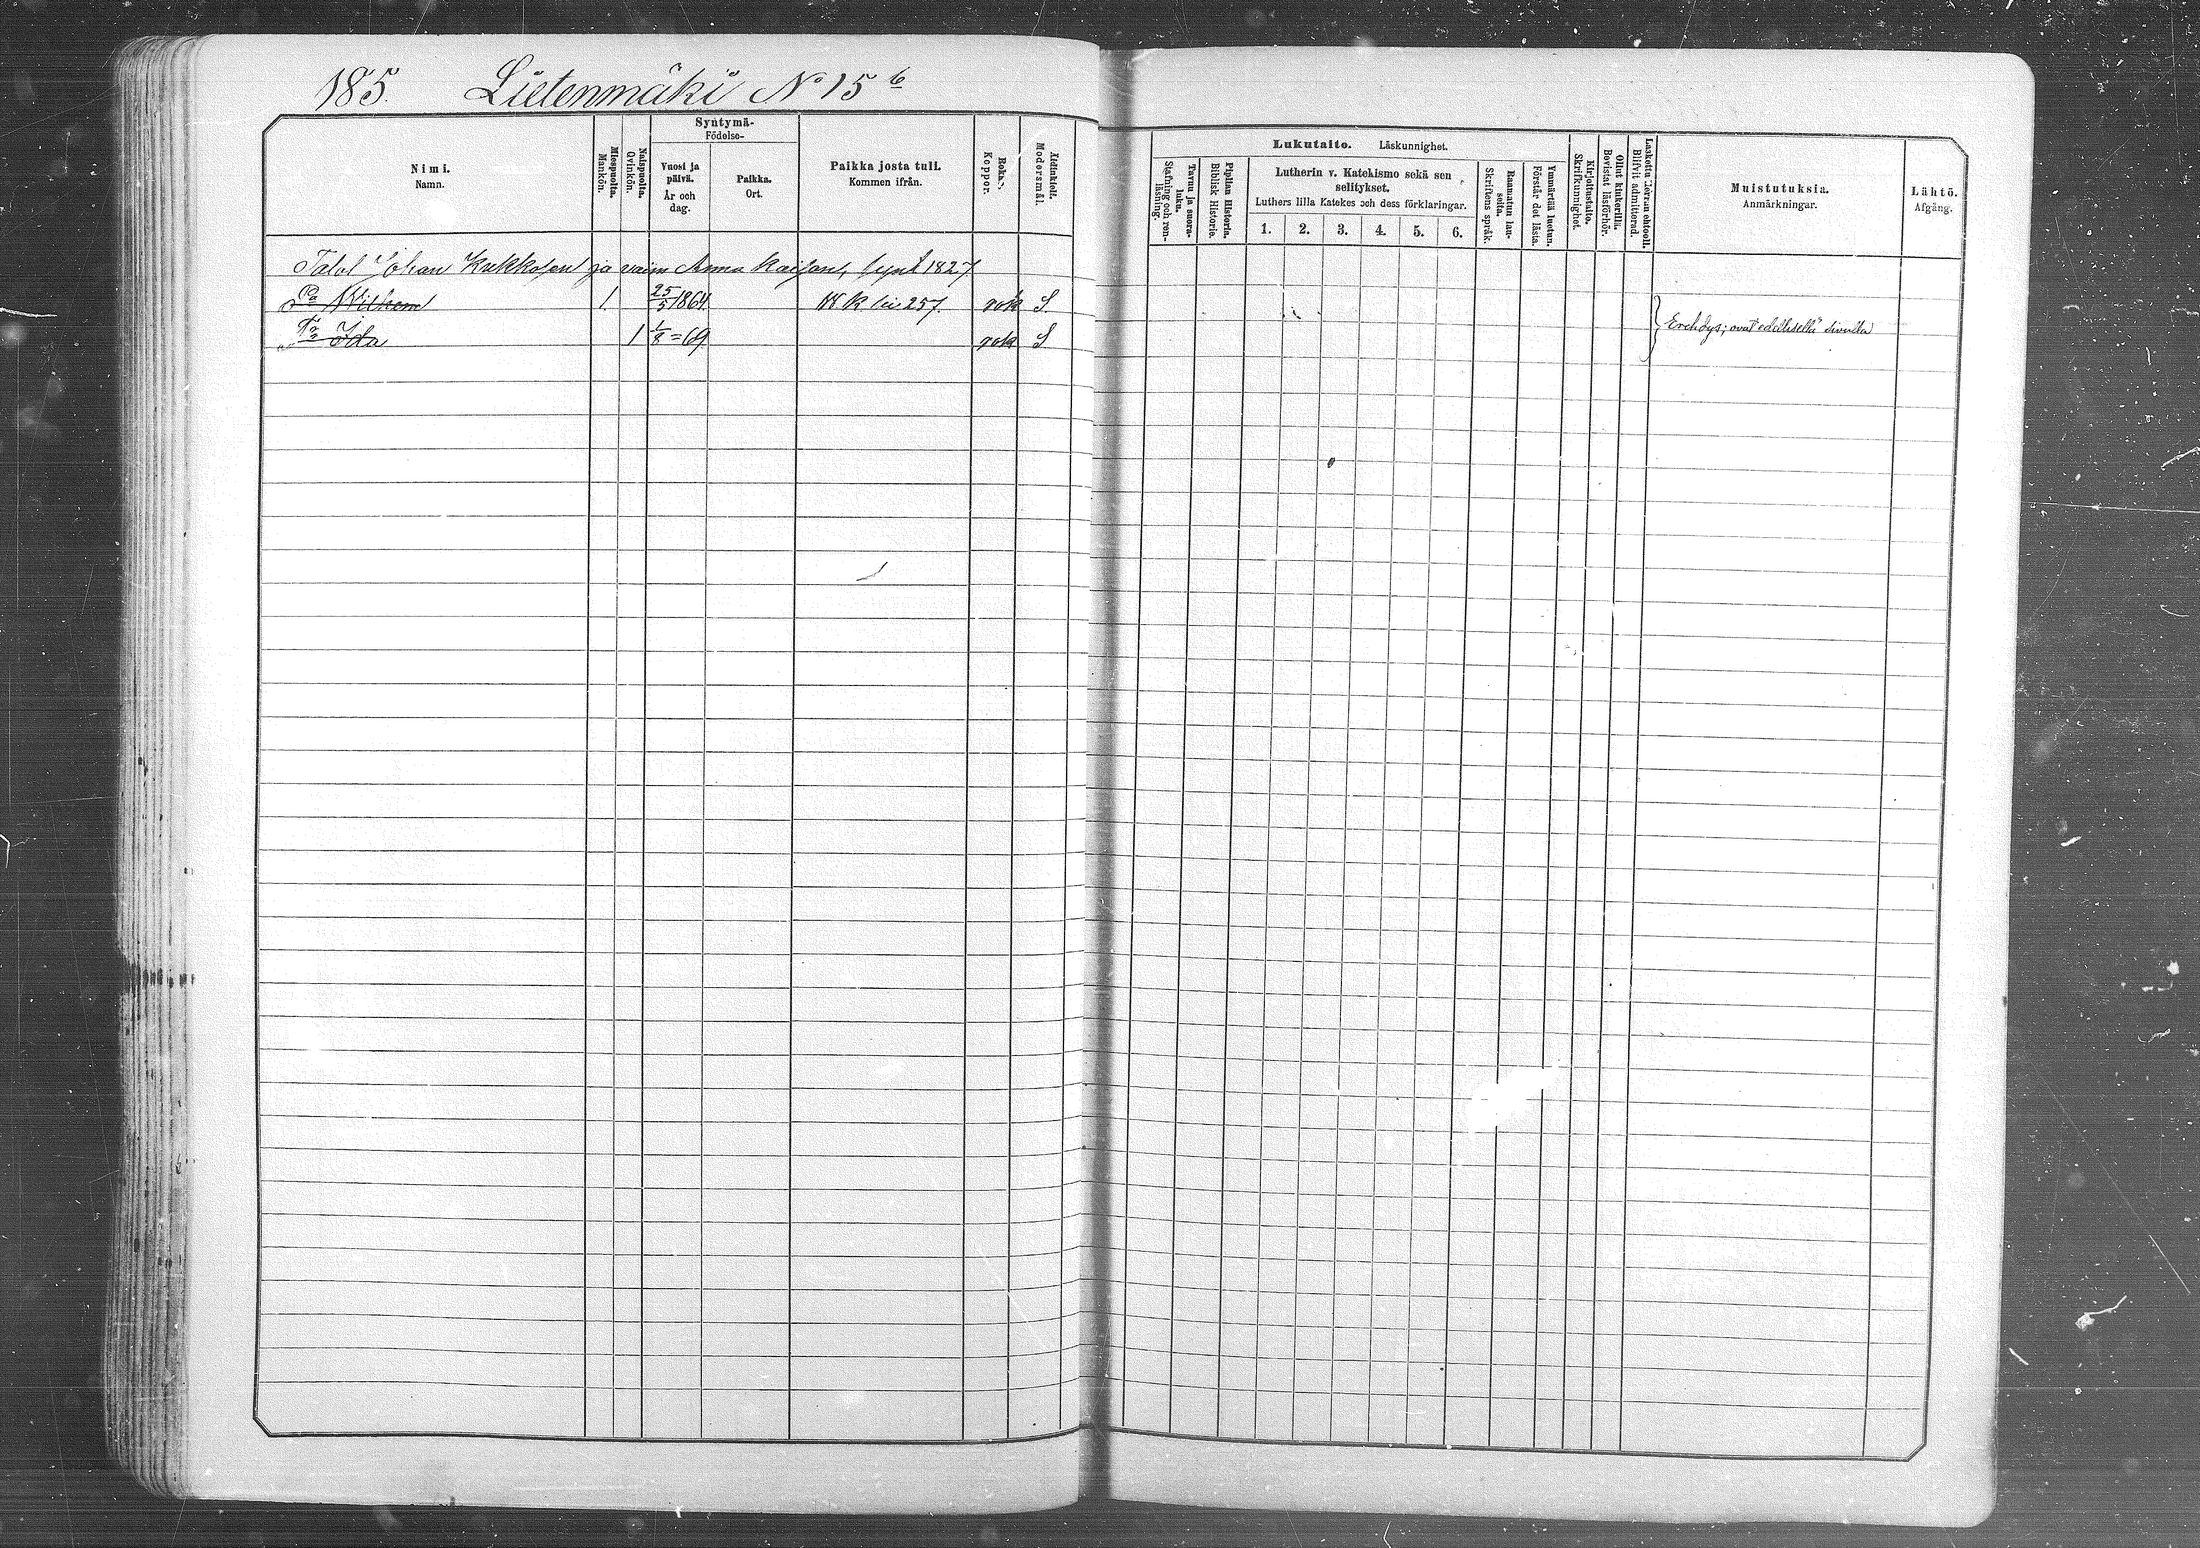 185. Lietenmäki No 15 b
Syntymä-
Födelse-
Nimi.
Namn.
Miespuolta.
Mankön.
Naispuolta.
Qvinkön.
Vuosi ja
päivä.
År och
dag.
Paikka.
Ort.
Paikka josta tuli.
Kommen ifrån.
Roko.
Koppor.
Äidinkieli.
Modersmål.
Talol Johan Kukkosen ja vaim Anna Kaisan, synt 1827
Pa Wilhem 1. 25/5 1864. K 257. rok S.
Tr Ida 1 1/8 = 69. rok S
Lukutaito. Läskunnighet.
Tavuu ja suora-
luku.
Stafning och ren-
läsning.
Piplian Historia.
Biblisk Historie.
Lutherin v. Katekismo sekä sen
selitykset.
Luthers lilla Katekes och dess förklaringar.
1. 2. 3. 4. 5. 6.
Raamatun lau-
seita.
Skriftens språk.
Ymmärtää luetun.
Förstår det lästa.
Kirjoitustaito.
Skrifkunnighet.
Ollut kinkerillä.
Bevistat läsförhör.
Laskettu Herran ehtooll.
Blifvit admitterad.
Muistutuksia.
Anmärkningar.
Lähtö.
Afgång.
Erehdys; ovat edellisellä sivulla